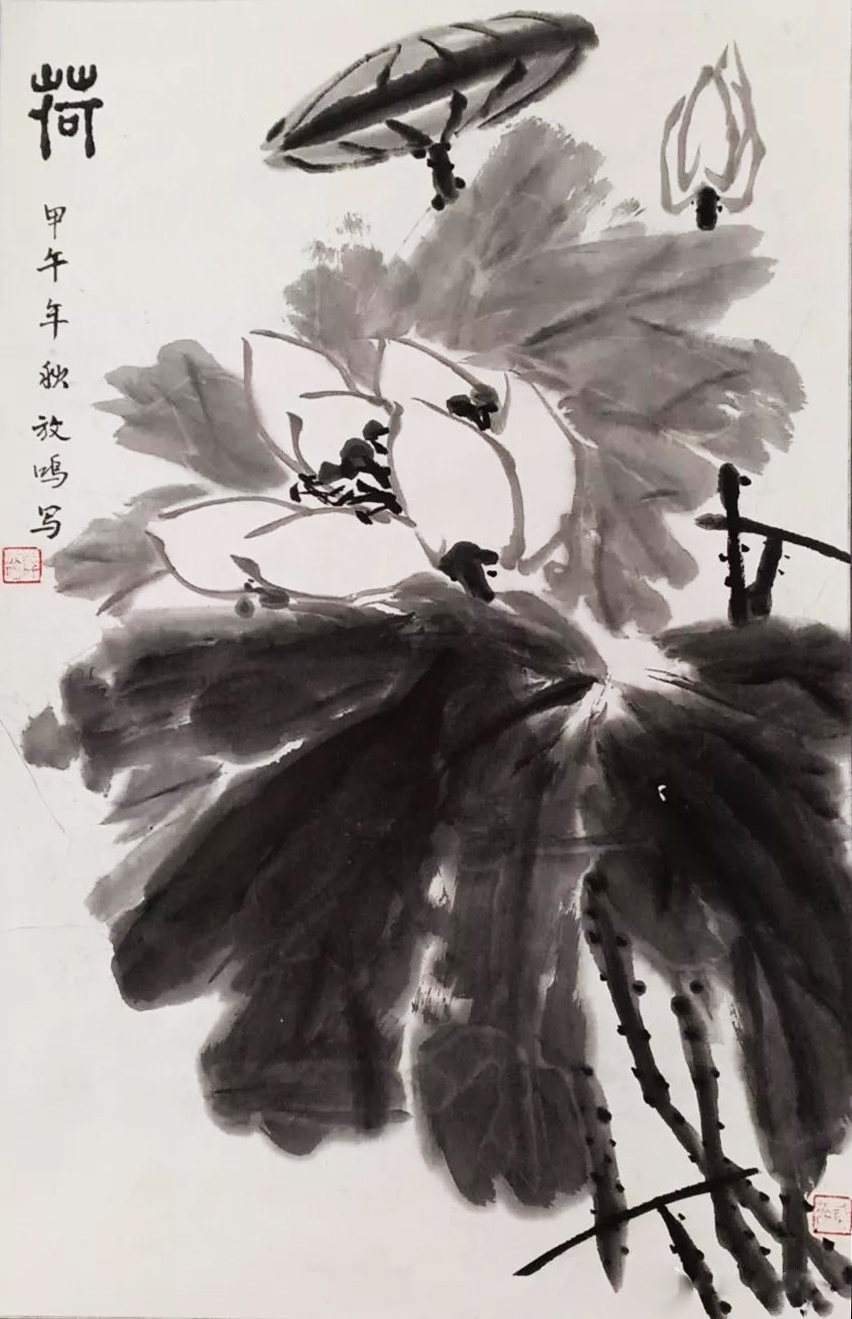 荷
甲午年秋放鸣写